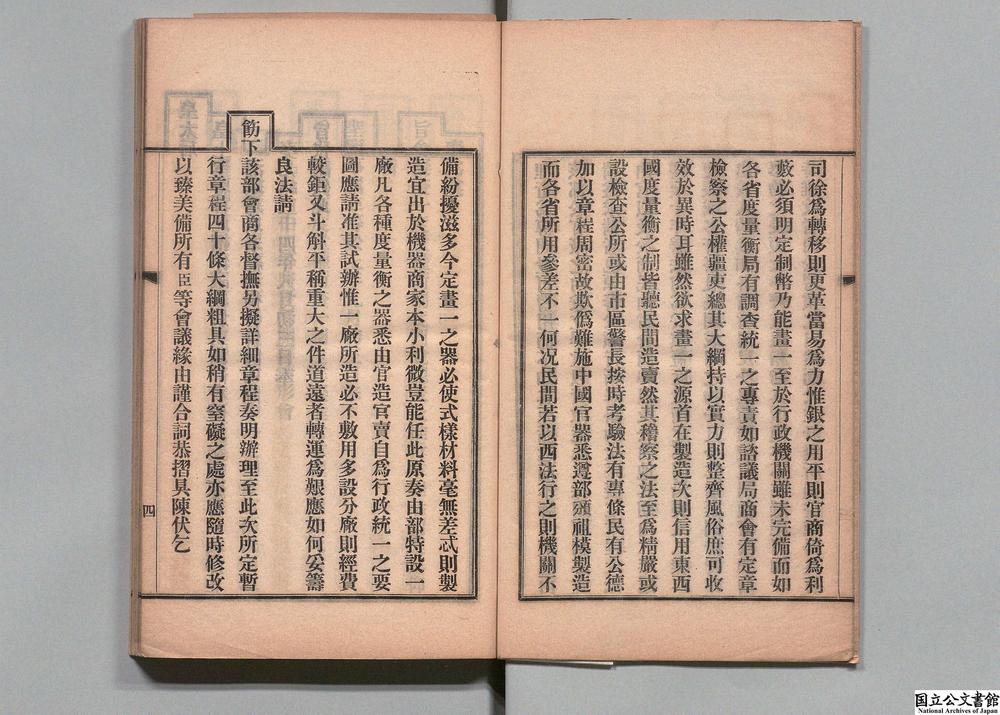 司徐爲轉移則更革當易爲力惟銀之用平則官商倚爲利
藪必須明定制幣乃能畫一至於行政機關雖未完備而如
各省度量衡局有調查統一之專責如諮議局商會有定章
檢察之公權疆吏總其大綱持以實力則整齊風俗庶可收
效於異時耳雖然欲求畫一之源首在製造次則信用東西
國度量衡之制皆聽民間造賣然其稽察之法至爲精嚴或
設檢查公所或由市區警長按時考驗法有專條民有公德
加以章程周密故欺僞難施中國官器悉遵部頒祖模製造
而各省所用參差不一何况民間若以西法行之則機關不
備紛擾滋多今定畫一之器必使式樣材料毫無差忒則製
造宜出於機器商家本小利微豈能任此原奏由部特設一
廠凡各種度量衡之器悉由官造官賣自爲行政統一之要
圖應請准其試辦惟一廠所造必不敷用多設分廠則經費
較鉅又斗斛平稱重大之件道遠者轉運爲艱應如何妥籌
良法請
飭下該部會商各督撫另擬詳細章程奏明辦理至此次所定暫
行章程四十條大綱粗具如稍有窒礙之處亦應隨時修改
以臻美備所有臣等會議緣由謹合詞恭摺具陳伏乞
四
国立公文書館
National Archives of Japan